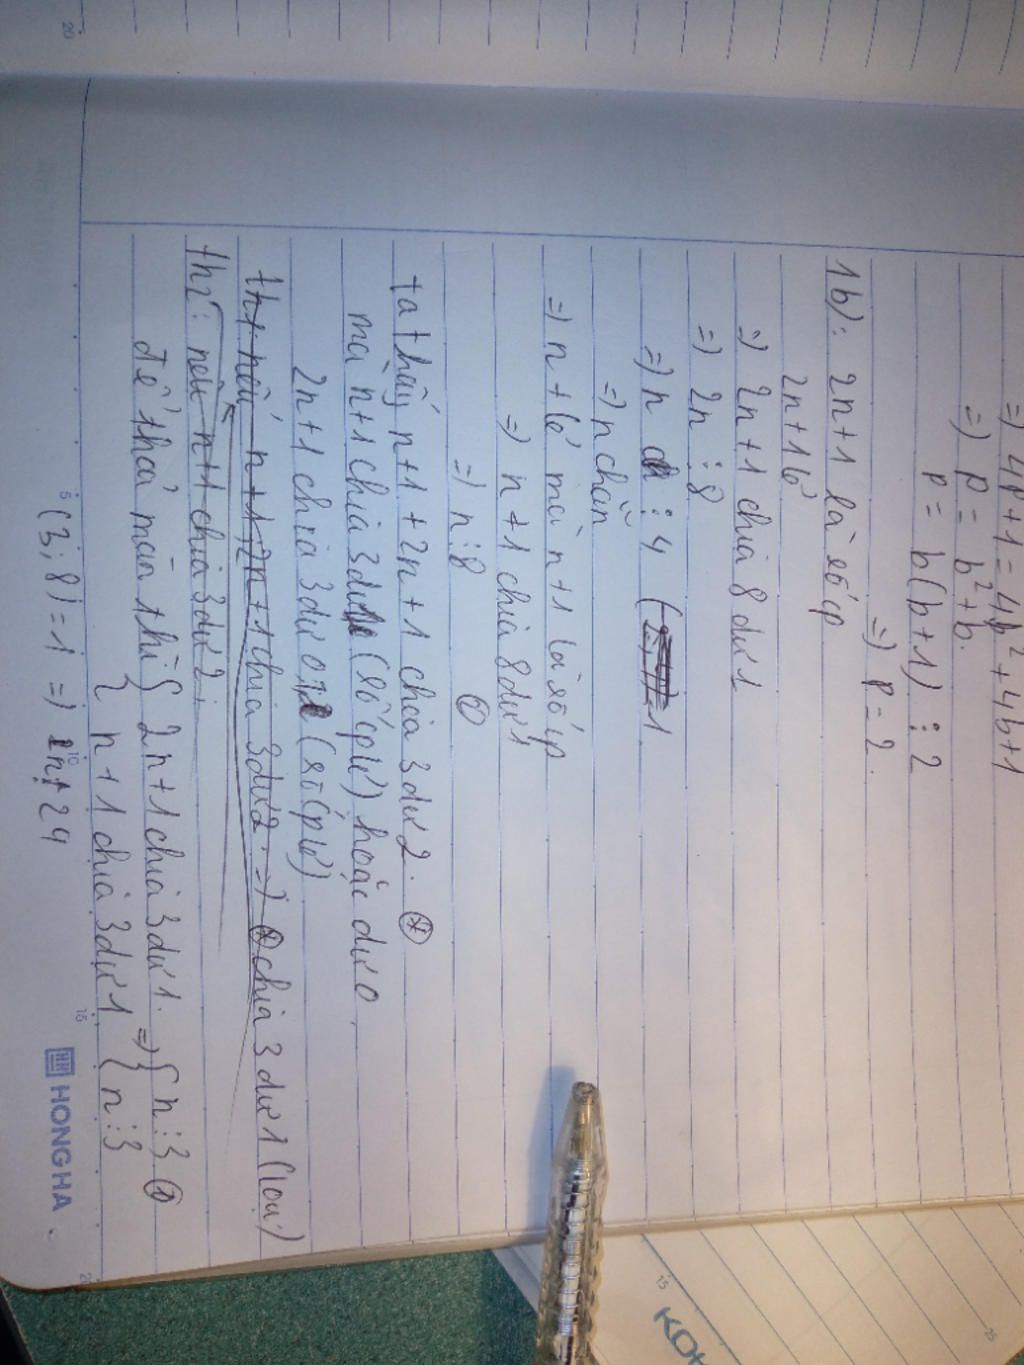 =) 4P+1 = 4b²+4b+1
=) P = b²+b.
P = b(b+1) ⋮ 2
=) P = 2.
1b): 2n+1 là số cp
2n+1 lẻ
=) 2n+1 chia 8 dư 1
=) 2n ⋮ 8
=) n ⋮ 4 (1
=) n chẵn
=) n+1 lẻ mà n+1 là số cp
=) n+1 chia 8 dư 1
=) n ⋮ 8 ②
ta thấy n+1 + 2n+1 chia 3 dư 2. (*)
mà n+1 chia 3 dư 1 (số cp lẻ) hoặc dư 0,
2n+1 chia 3 dư 0, 1 (số cp lẻ)
th1: nếu n+1, 2n+1 chia 3 dư 2 =) (*) chia 3 dư 1 (loại)
th2: nếu n+1 chia 3 dư 2,
để thỏa mãn thì { 2n+1 chia 3 dư 1. =) { n ⋮ 3 ①
{ n+1 chia 3 dư 1 { n ⋮ 3
(3; 8) = 1 =) n ⋮ 24
HONG HA
5
10
15
20
15
25
KO